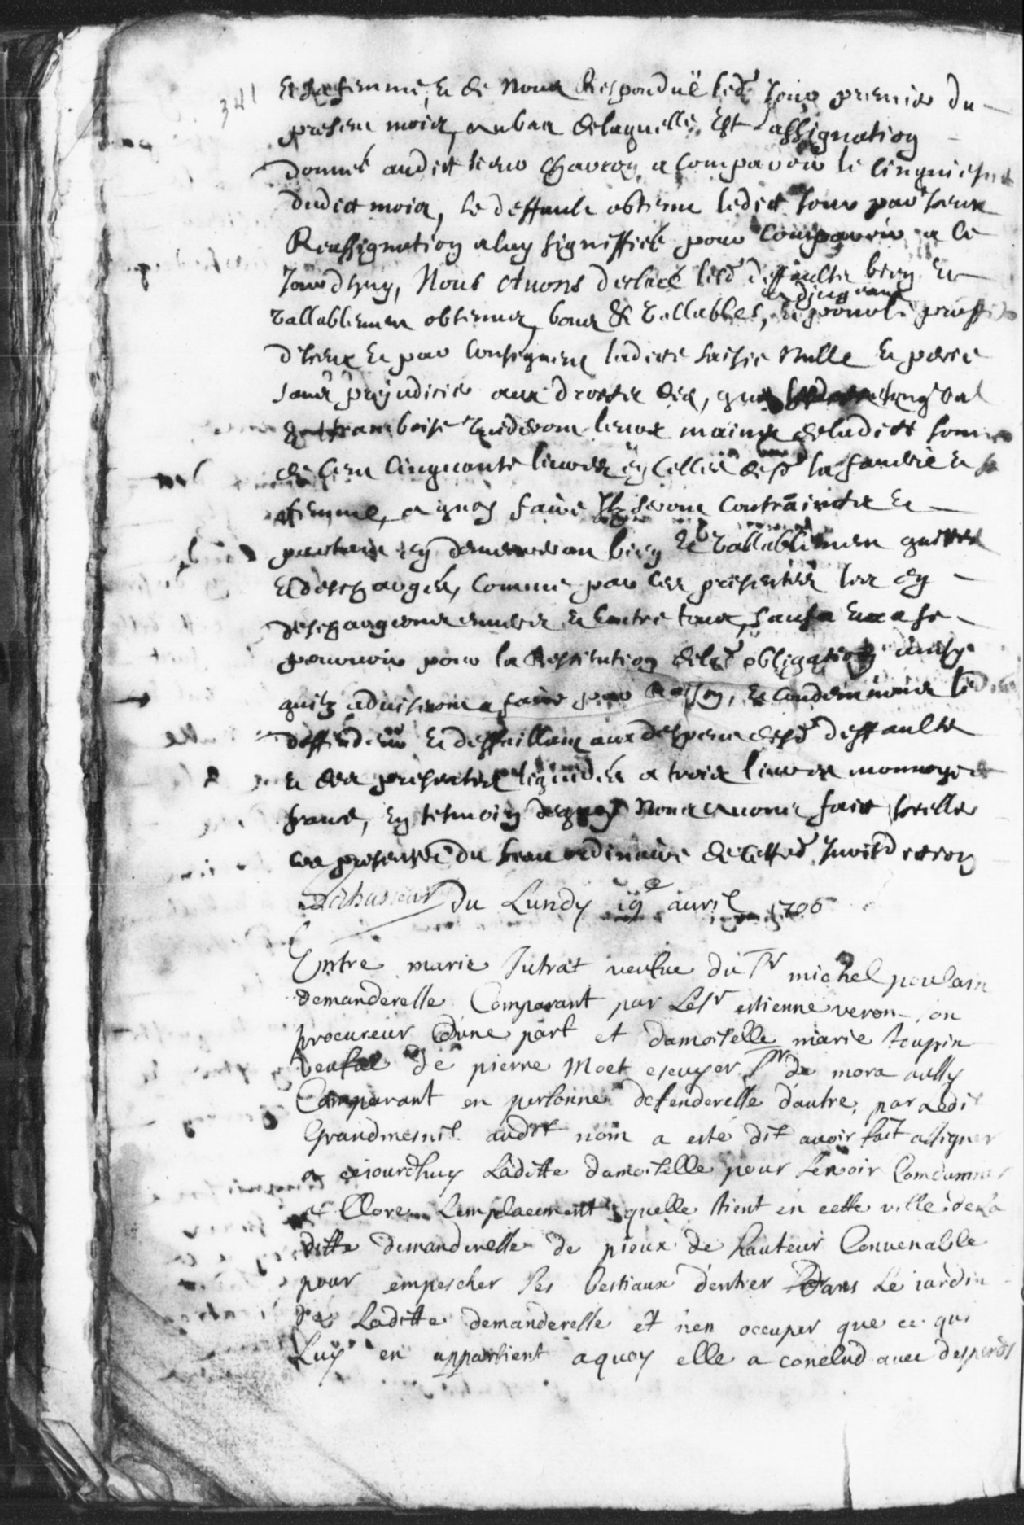 341
Et sa femme, & de Nous Respondüe led. Jour premier du
present mois, au bas de laquelle Est assignation
donneé audict sieur a Comparoir le Cinquiesme
dudict mois, le deffault obtenu ledict Jour par Iceux
Reassignation a luy signiffieé pour Comparoir a ce
Jourdhuy, Nous Avons declaré lesd. deffaults bien &
vallablement obtenus, bons & vallables, et proffit
d'Iceux Et par Consequent ladicte saisie Nulle
sans prejudicier aux droits que
Vuideront leurs mains de ladicte somme
de Cent Cinquante livres
femme, a quoy faire Ilz seront Contraincts &
partant en demeureront bien & vallablement quittes
Et deschargés, Comme par les presentes les en
deschargeons envers & Contre tous, sauf a eux a se
pourvoir pour la Restitution obligation ainsy
quilz adviseront a faire par Raison, & Condemnons le
deffendeur & deffaillant aux despens desd. deffaults
& des presentes liquidés a trois livres monnoye de
france, En tesmoin dequoy Nous avons fait sceller
ces presentes du sceau ordinaire de cette Jurisdiction
Du Lundy 19e avril 1706
Entre marie Jutrat veufue du Sr michel poulain
demanderesse Comparant par Le Sr estienne veron, son
procureur d'une part et damoiselle marie toupin
veufue de pierre Moet escuyer Sr de mora aussy
Comparant en personne defenderesse d'autre, par ledit
Grandmesnil audit nom a esté dit avoir fait assigner
a cejourdhuy Laditte damoiselle pour se voir Condamner
a Clore Lemplacement quelle tient en cette ville de la
ditte demanderesse de pieux de hauteur Convenable
pour empescher Les bestiaux d'entrer Dans Le iardin
de Laditte demanderesse et n'en occuper que ce qui
Luy en appartient a quoy elle a conclud avec despens